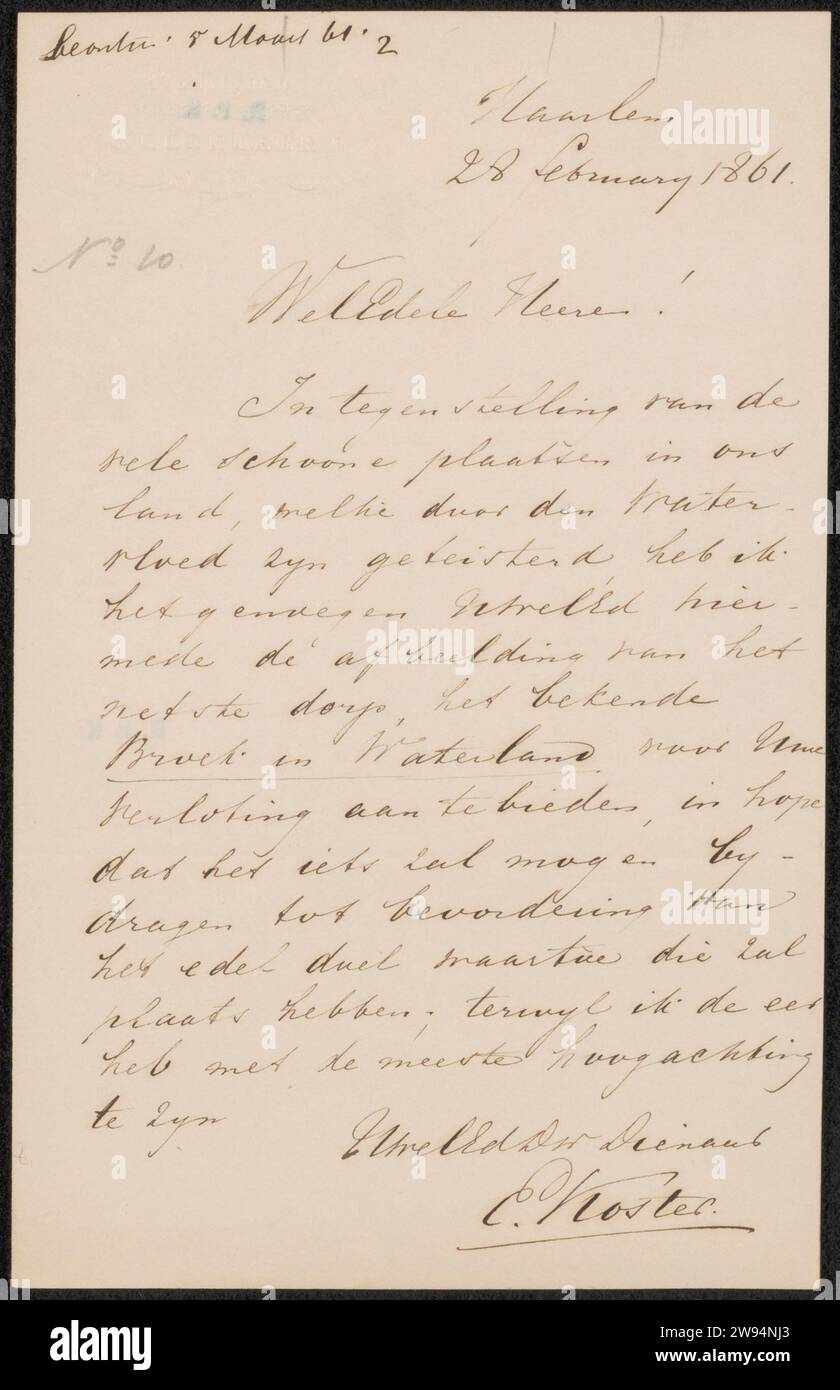 beantw. 5 Maart 61. 2
Haarlem
28 February 1861.
No 10
WelEdele Heeren!
In tegenstelling van de
vele schoone plaatsen in ons
land, welke door den Water-
vloed zyn geteisterd heb ik
het genoegen UwelEd hier-
mede de afbeelding van het
netste dorp, het bekende
Broek in Waterland voor Uwe
verloting aan te bieden, in hope
dat het iets zal mogen by-
dragen tot bevordering van
het edel doel waartoe die zal
plaats hebben; terwyl ik de eer
heb met de meeste hoogachting
te zyn
UwelEdDw Dienaar
E. Koster.
alamy
Image ID: 2W94NJ3
www.alamy.com